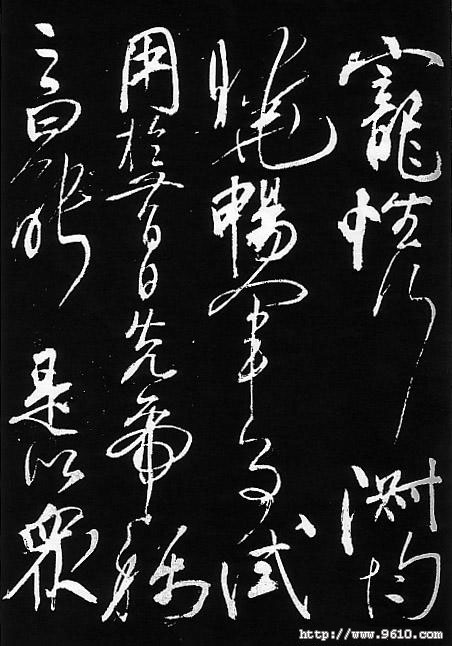 寵性行淑均
曉暢軍事試
用於昔日先帝稱
之曰能是以眾
http://www.9610.com/